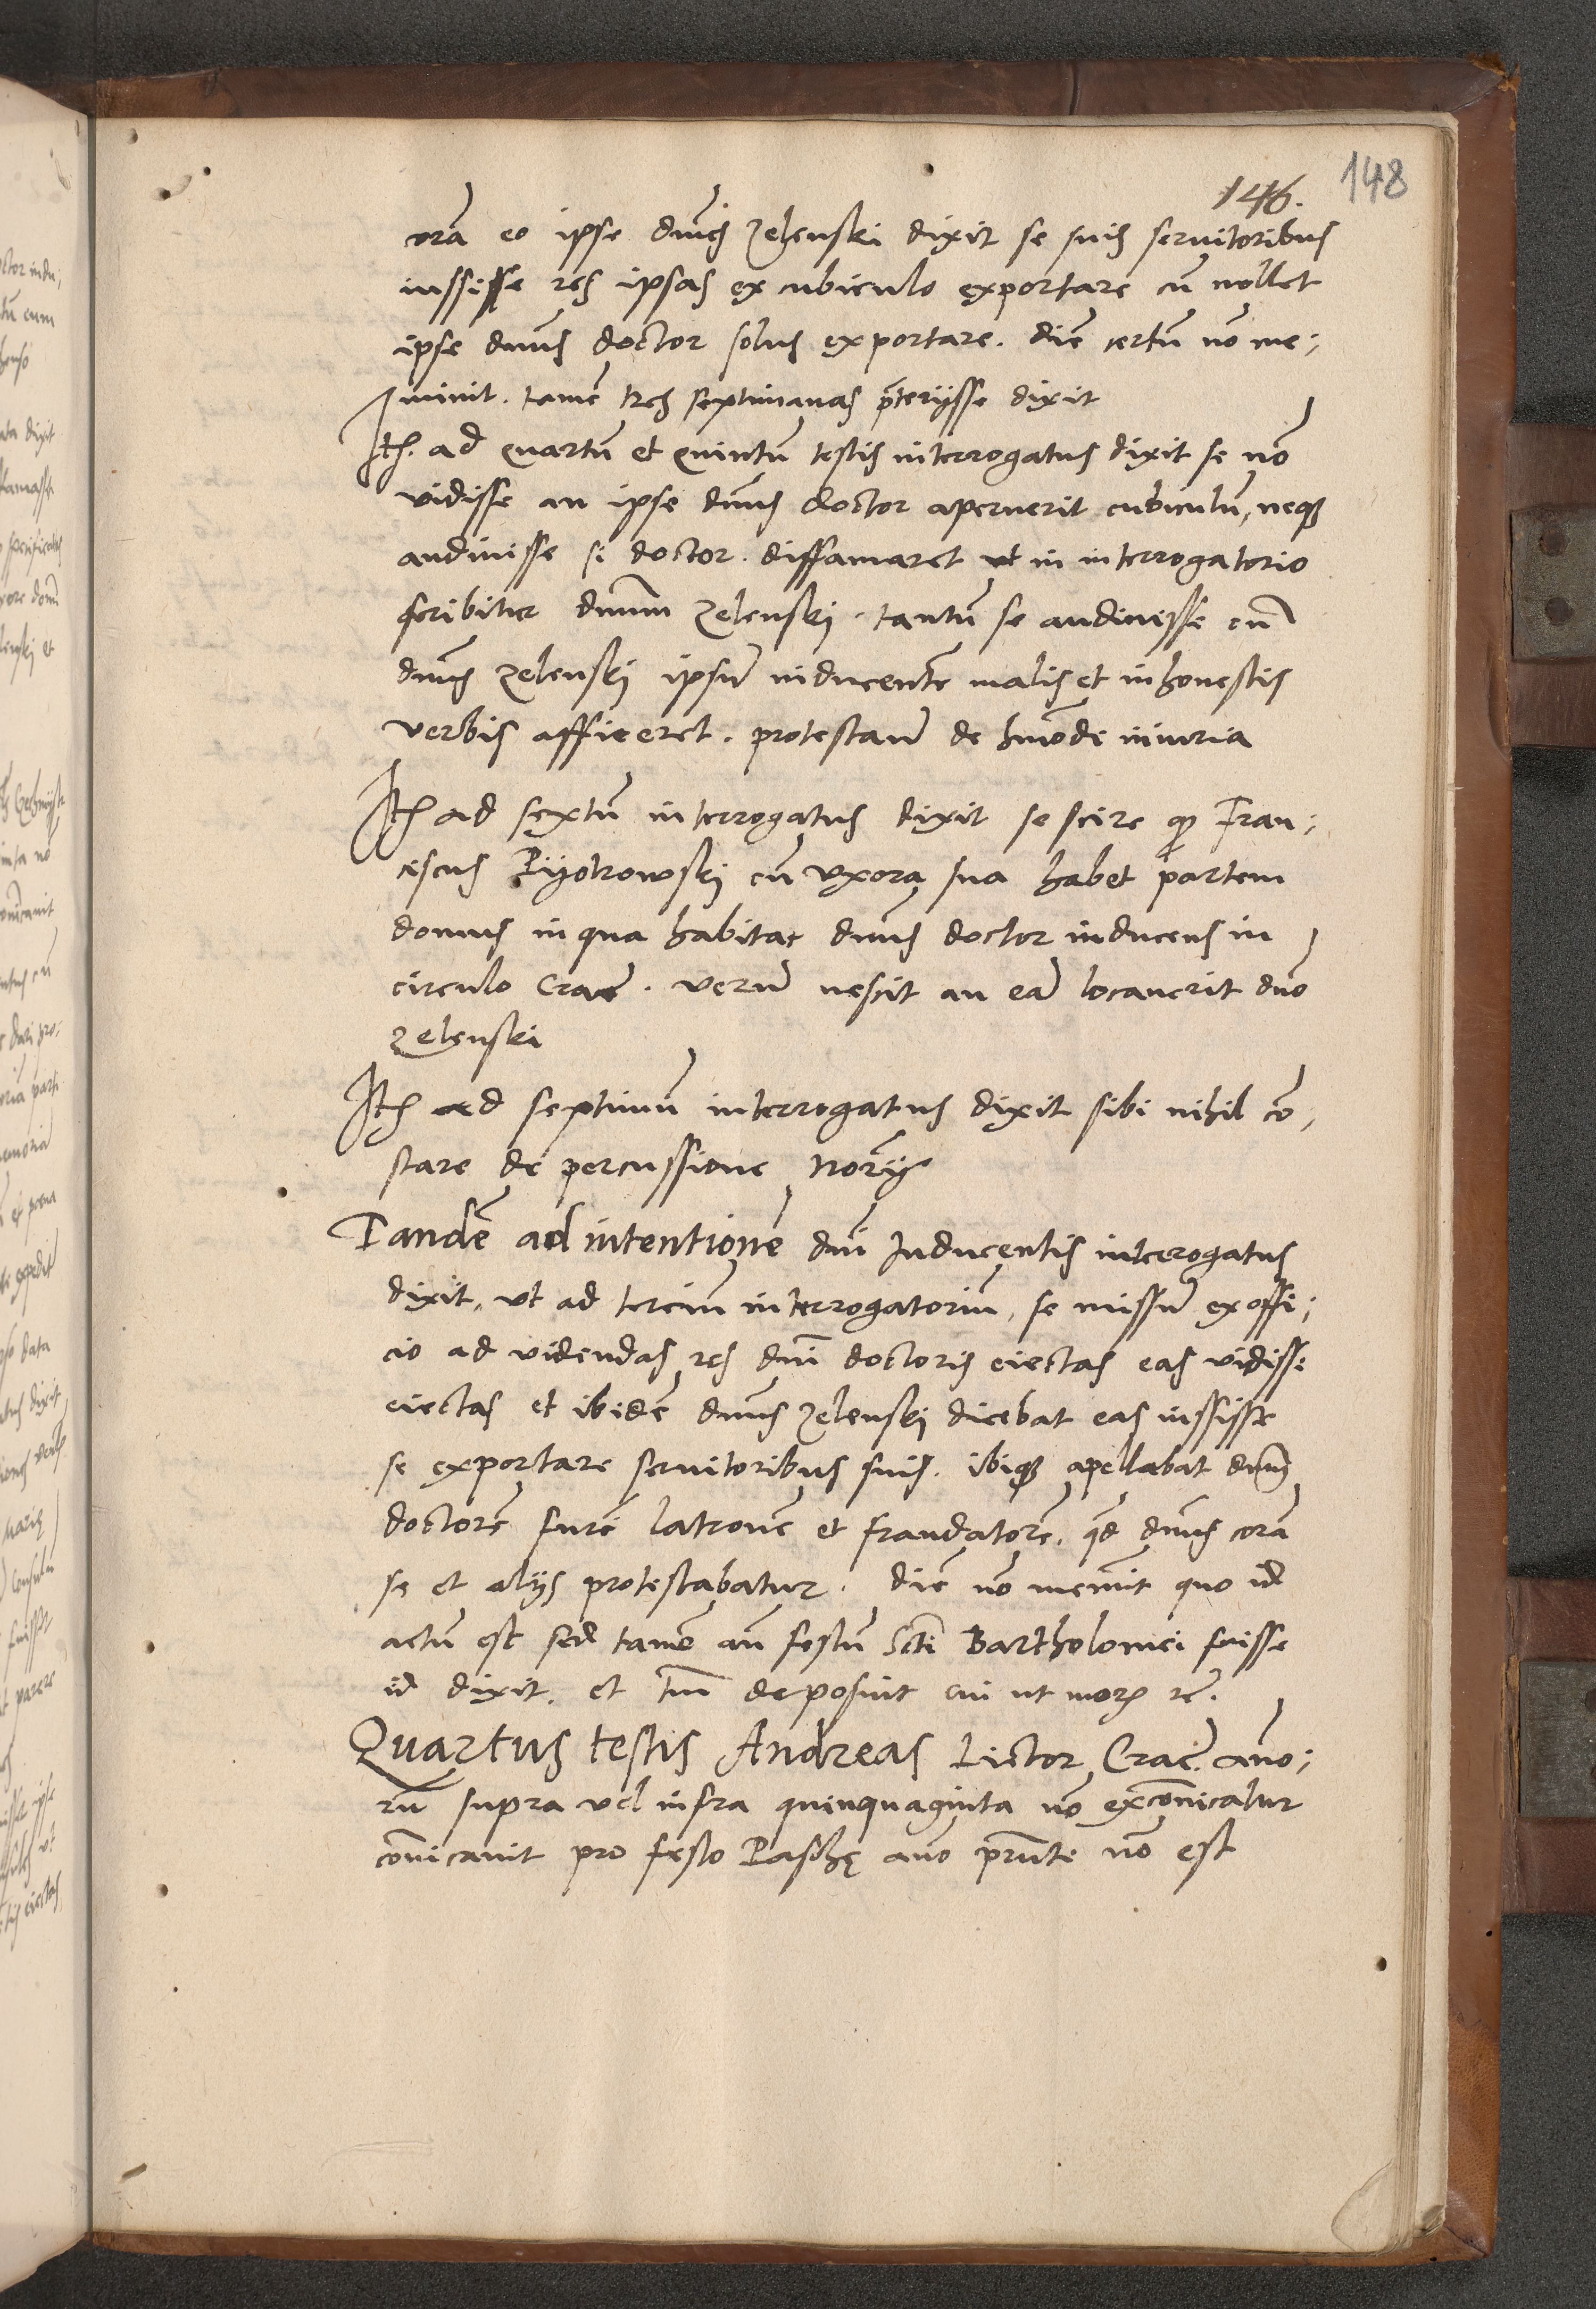 148
146.
corā eo ipse dnūs Zelenski dixit se suis seruitoribus
iussisse res ipsas ex cubiculo exportare cū nollet
ipse dnūs doctor solus exportare. diē certū nō me;
minit. tamē tres septimanas p̄terijsse dixit
Itē. ad quartū et quintū testis interrogatus dixit se nō
vidisse an ipse dnūs doctor aperuerit cubiculū, neq3
audiuisse si doctor. diffamaret ut in interrogatorio
scribitur dnūm Zelenskj. tantū se audiuisse cū
dnūs Zelenskj ipsū inducentē malis et inhonestis
verbis afficeret. protestarē de hmōdi iniuria
Itē ad sextū interrogatus dixit se scire qp Fran;
ciscus Pyotrowskj cū vxora sua habet partem
domus in qua habitat dnūs doctor inducens in
circulo Crac̄. verū nescit an eā locauerit dnō
Zelenski
Itē ad septimū interrogatus dixit sibi nihil cō,
stare de percussione
Tandē ad intentionē dnī Inducentis interrogatus
dixit, vt ad terciūm interrogatoriūm, se missū ex offi;
cio ad videndas res dnī doctoris eiectas eas vidisse
eiectas et ibidē dnūs Zelenskj dicebat eas iussisse
se exportare seruitoribus suis. ibiq3 apellabat dnūm
doctorē furē latronē et fraudatorē. qd̄ dnūs corā
se et alijs protestabatur. diē nō meminit quo id
actū est sed tamē an̄ festū Scti Bartholomei fuisse
id dixit. et tm̄ deposuit cui ut moris rc̄.
Quartus testis Andreas Lictor Crac̄. anno;
rū supra vel infra quinquaginta nō excōmicatur
cōmicauit pro festo Paschę anō prn̄ti nō est